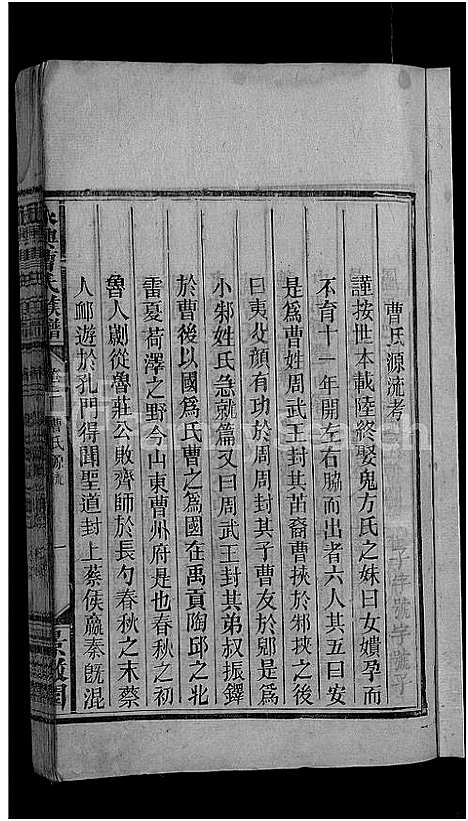 曹氏源流考
謹按世本載陸終娶鬼方氏之妹曰女嬇孕而
不育十一年開左右脇而出者六人其五曰安
是爲曹姓周武王封其苗裔曹挾於邾挾之後
曰夷父顔有功於周周封其子曹友於郳是爲
小邾姓氏急就篇又曰周武王封其弟叔振鐸
於曹後以國爲氏曹之爲國在禹貢陶邱之北
雷夏荷澤之野今山東曹州府是也春秋之初
魯人劌從魯莊公敗齊師於長勺春秋之末蔡
人邮遊於孔門得聞聖道封上蔡侯嬴秦旣混
曹氏族譜
曹氏源流
一